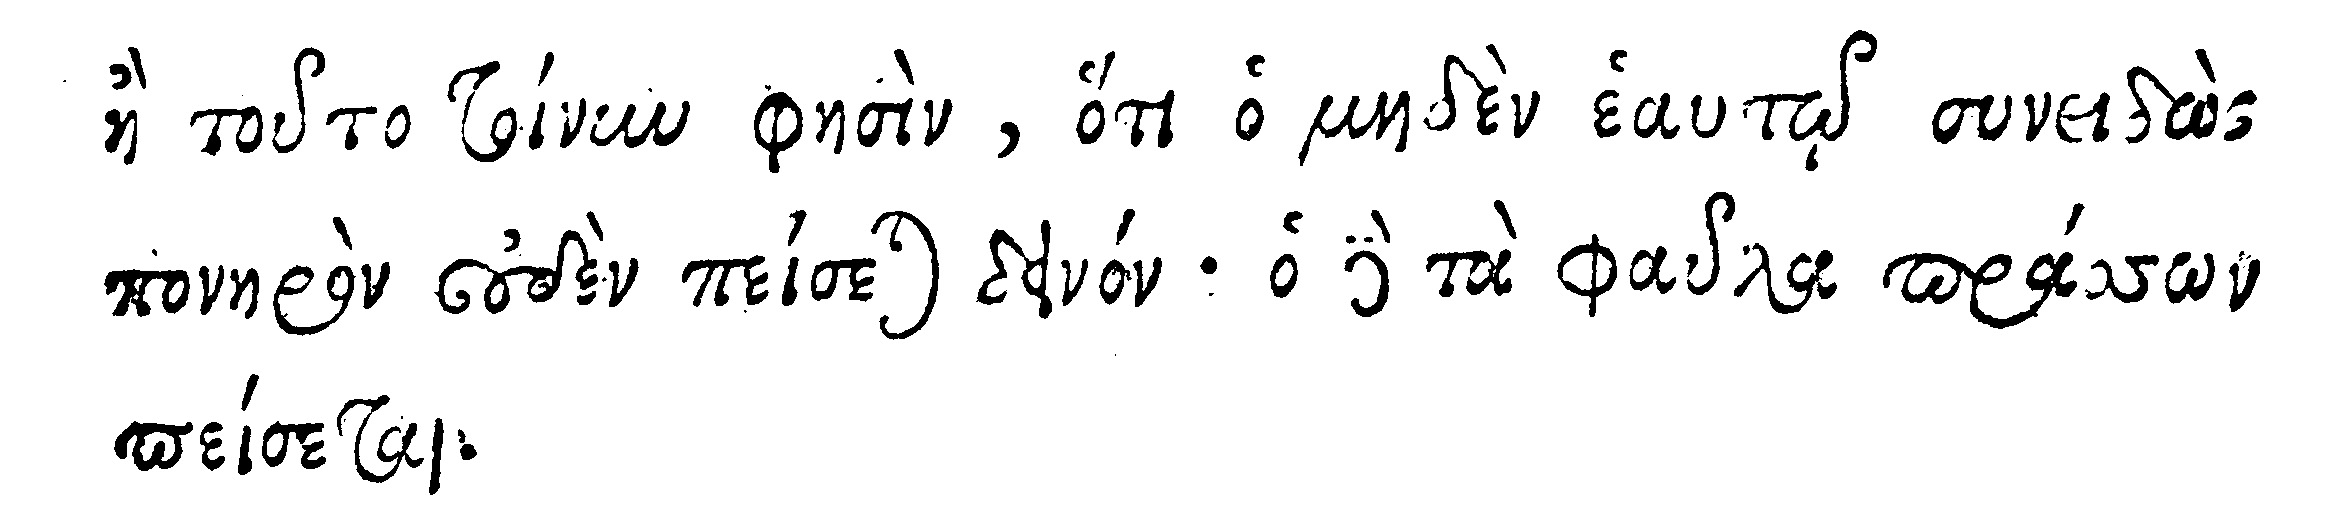 ἢ τοῦτο τοίνυν φησὶν, ὅτι ὁ μηδὲν ἑαυτῷ συνειδὼς
πονηρὸν οὐδὲν πείσεται δεινόν· ὁ δὲ τὰ φαῦλα πράττων
πείσεται.